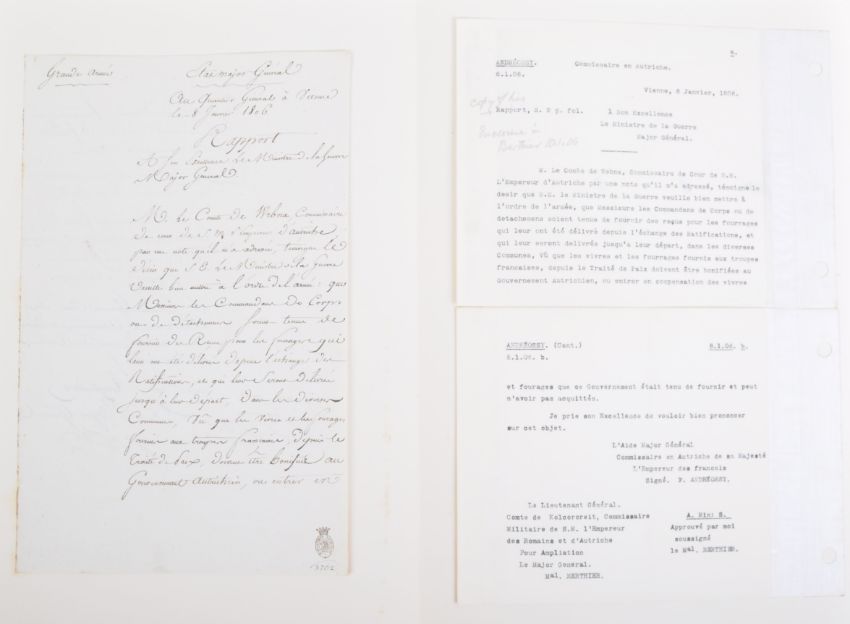 Grande Armée
Etat major Général
Au Quartier Général à Vienne
le 8 Janvier 1806
Rapport
A Son Excellence Le Ministre de la Guerre
Major Général
M. Le Comte de Webna Commissaire
de cour de S. M. l'Empereur d'Autriche
par une note qu'il m'a adressée, témoigne le
désir que S. E. Le Ministre de la Guerre
Veuille bien mettre à l'ordre de l'armée que
Messieurs les Commandans De Corps
ou de détachemens soient tenus de
fournir des Reçus pour les fourages qui
leur ont été délivrés depuis l'échange des
Ratifications, et qui leur seront délivrés
jusqu'à leur départ, dans les diverses
Communes, Vû que les Vivres et les fourages
fournis aux troupes françaises, depuis le
Traité de Paix, doivent être bonifiés au
Gouvernement Autrichien, ou entrer en
2-
ANDRÉOSSY. Commissaire en Autriche.
6.1.06.
Vienne, 6 Janvier, 1806.
Copy of his
Rapport, S. D y. fol. 1 Son Excellence
Le Ministre de la Guerre
Major Général.
Enclosure in
Berthier
M. Le Comte de Webna, Commissaire de Cour de S.M.
L'Empereur d'Autriche par une note qu'il m'a adressé, témoigne le
desir que S.E. le Ministre de la Guerre veuille bien mettre à
l'ordre de l'armée, que Messieurs les Commandans de Corps ou de
detachemens soient tenus de fournir des reçus pour les fourrages
qui leur ont été délivré depuis l'échange des Ratifications, et
qui leur seront delivrés jusqu'à leur départ, dans les diverses
Communes, Vû que les vivres et les fourrages fournis aux troupes
françaises, depuis le Traité de Paix doivent être bonifiées au
Gouvernement Autrichien, ou entrer en compensation des vivres
ANDRÉOSSY. (Cont.) 6.1.06. b.
6.1.06. b.
et fourages que ce Gouvernement était tenu de fournir et peut
n'avoir pas acquittés.
Je prie son Excellence de vouloir bien prononcer
sur cet objet.
L'Aide Major Général
Commissaire en Autriche de sa Majesté
L'Empereur des francois
Signé. F. ANDRÉOSSI.
Le Lieutenant Général.
Comte de Commissaire
Militaire de S.M. l'Empereur
des Romains et d'Autriche
Pour Ampliation
Le Major General.
Mal. BERTHIER.
A.
Approuvé par moi
soussigné
le Mal. BERTHIER.